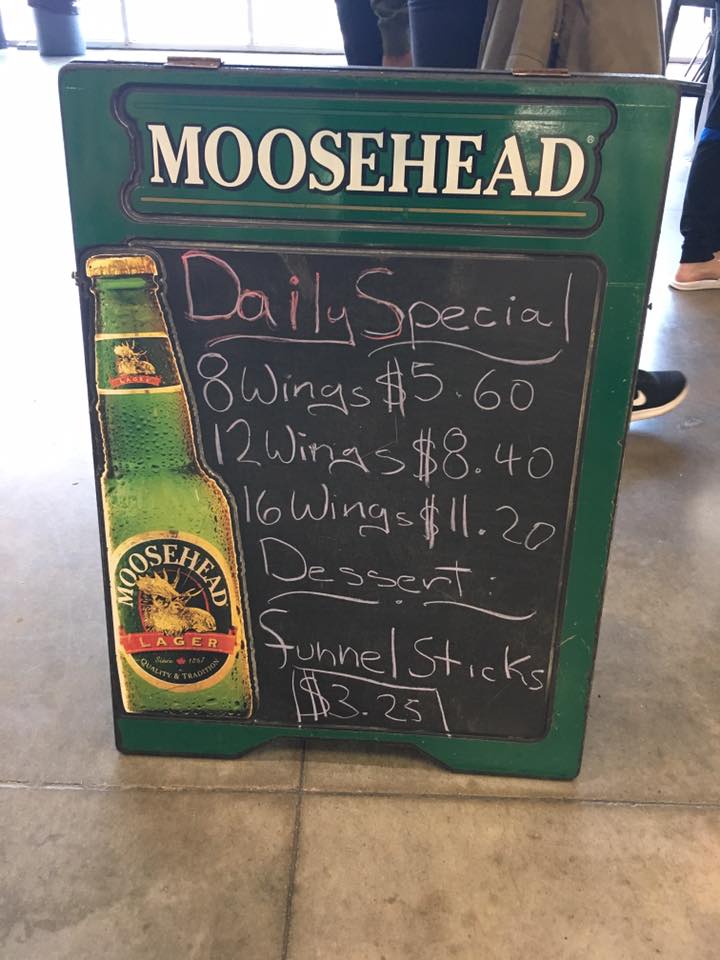 MOOSEHEAD®
Daily Special
8 Wings $5.60
12 Wings $8.40
16 Wings $11.20
Dessert:
Funnel Sticks
$3.25
LAGER
MOOSEHEAD
LAGER
Since 1867
QUALITY & TRADITION